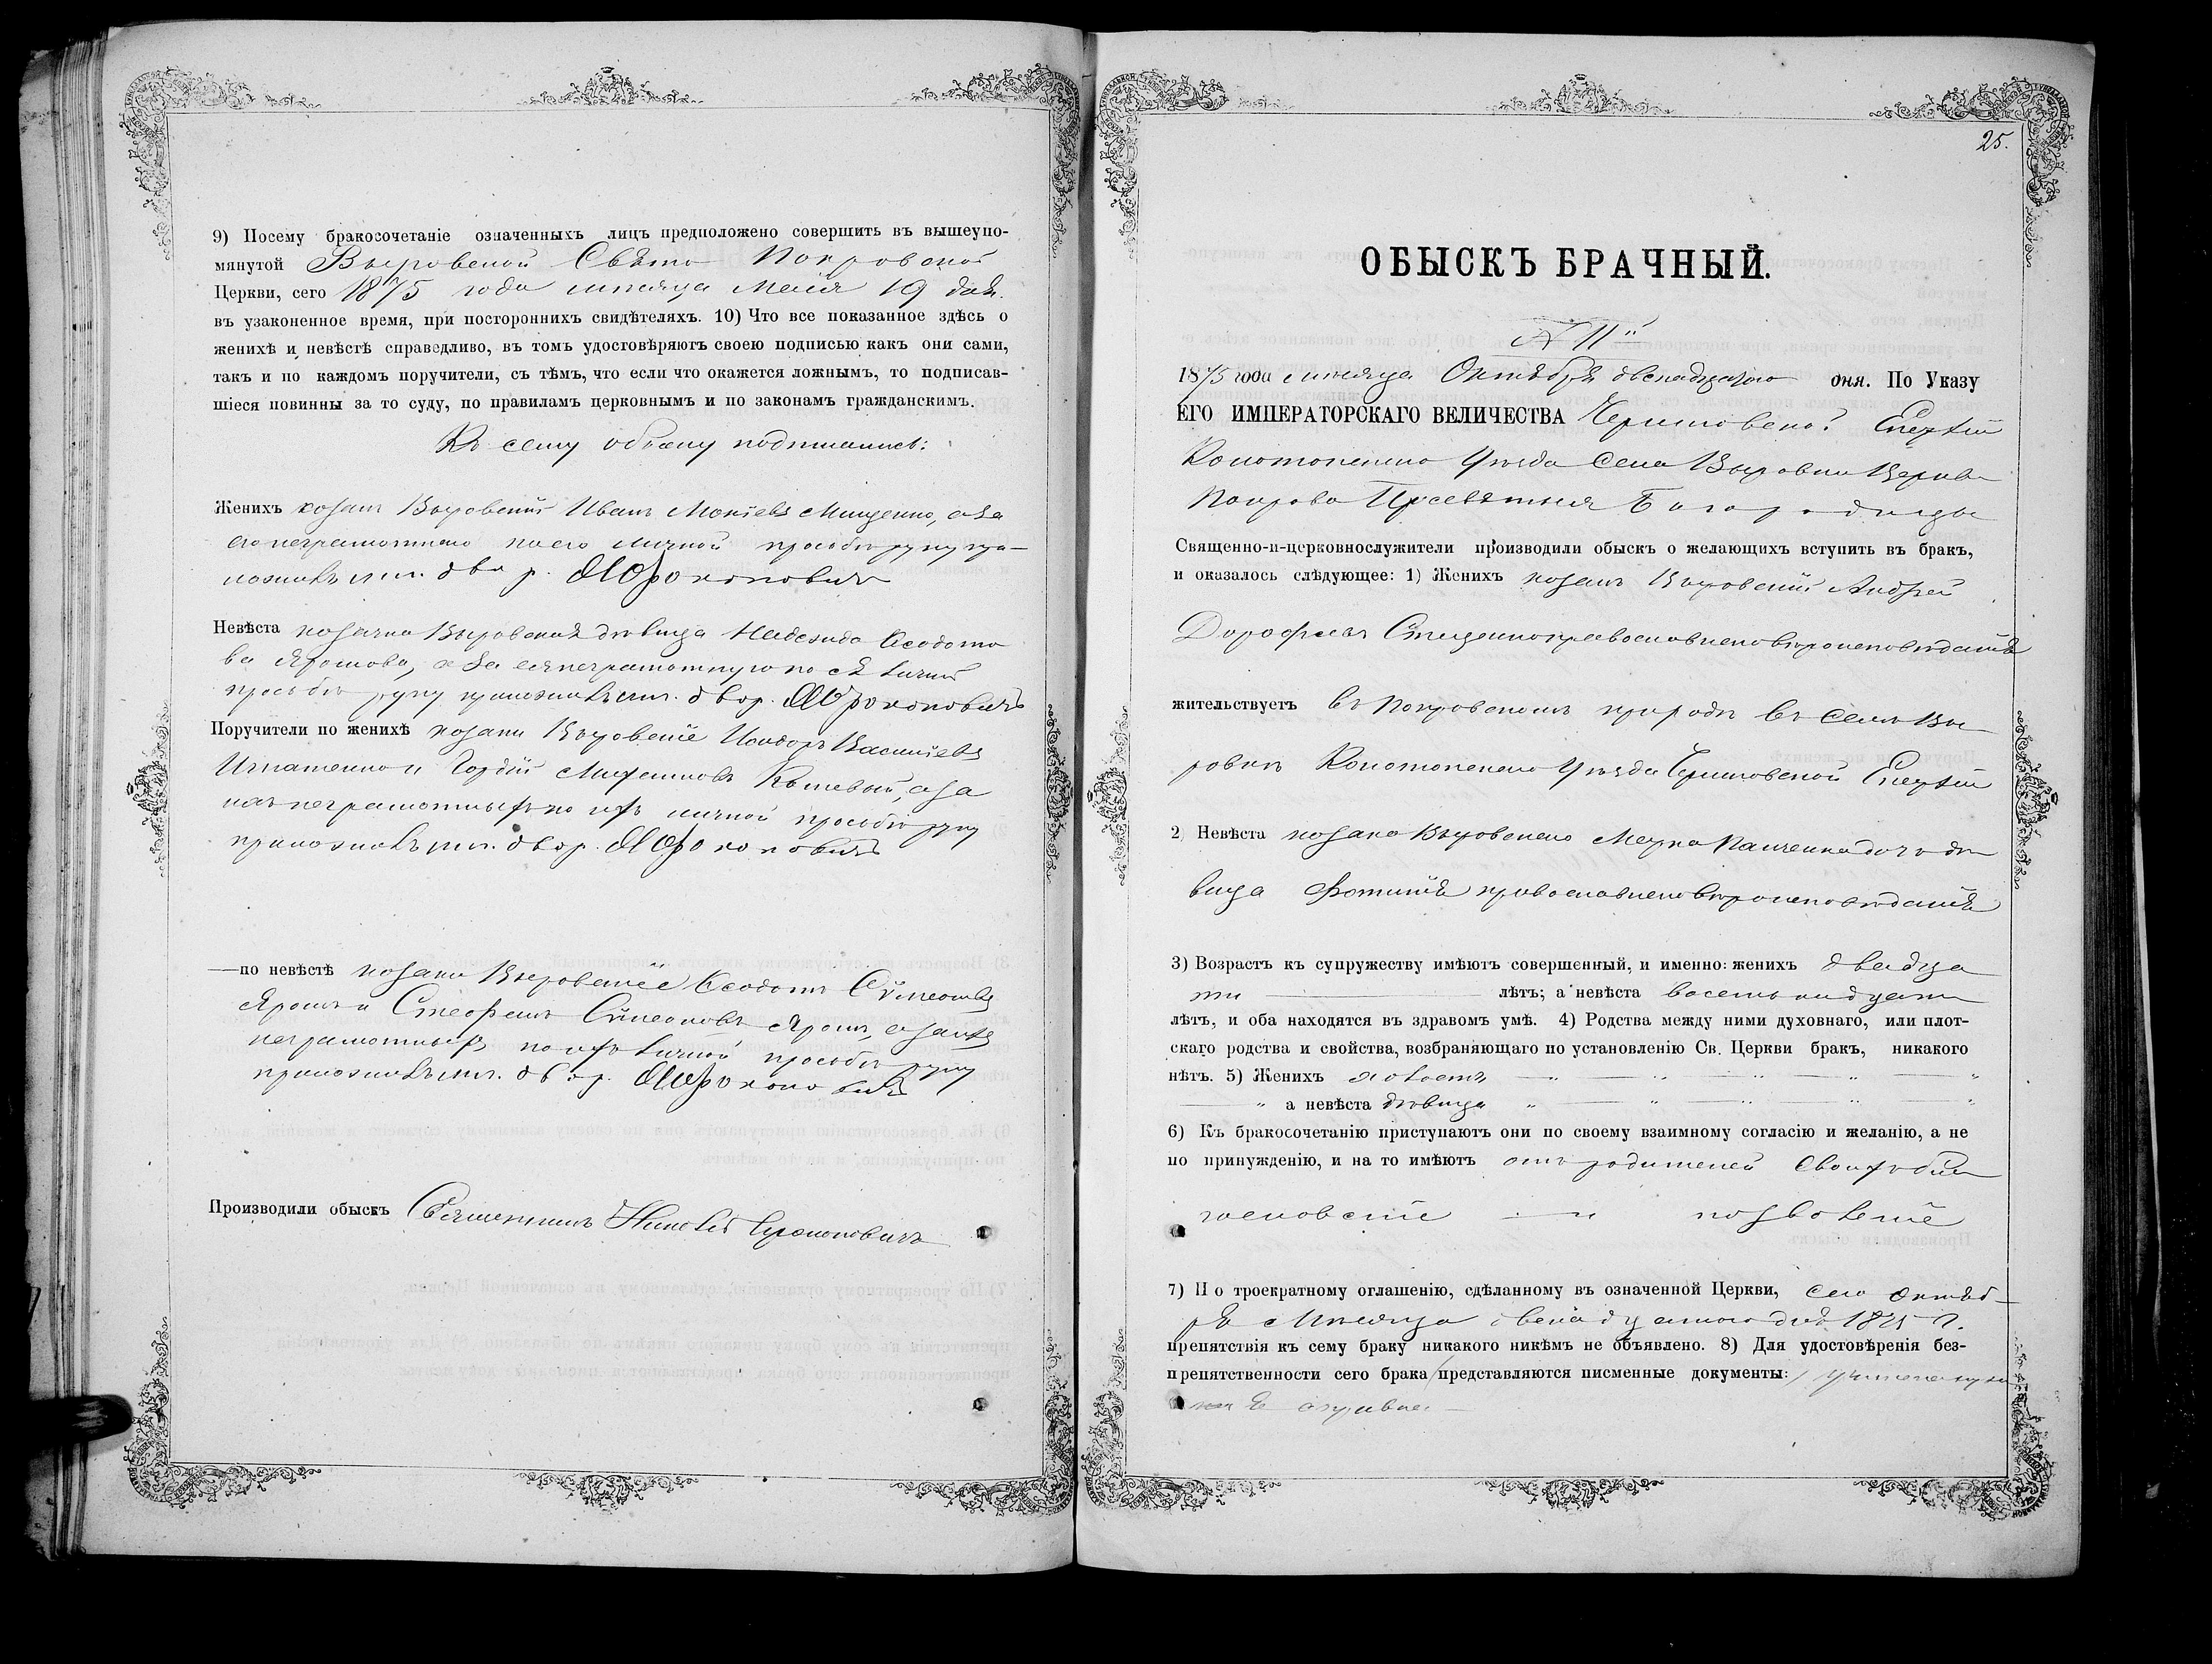 9) Посему бракосочетаніе означенныхъ лицъ предположено совершить въ вышеупо-
мянутой Выровской Свято Покровской
Церкви, сего 1875 года мѣсяца Маія 19 дня.
въ узаконенное время, при постороннихъ свидѣтеляхъ. 10) Что все показанное здѣсь о
женихѣ и невѣстѣ справедливо, въ томъ удостовѣряютъ своею подписью какъ они сами,
такъ и по каждомъ поручители, съ тѣмъ, что если что окажется ложнымъ, то подписав-
шіеся повинны за то суду, по правиламъ церковнымъ и по законамъ гражданскимъ.
Къ сему обыску подписались:
Женихъ козакъ Выровскій Иванъ Мокіевъ Мищенко, а за
его неграмотнаго по его личной прозьбѣ руку при-
ложилъ двор.
Невѣста козачка Выровская дѣвица Надежда Ѳеодото
ва Ярошова, а за ея неграмотную по ея личной
прозьбѣ руку приложилъ двор.
Поручители по женихѣ козаки Выровскіе Исидоръ Василіевъ
Игнатенко и Гордій а за
нихъ неграмотныхъ по ихъ личной прозьбѣ руку
приложилъ двор.
—по невѣстѣ козаки Выровскіе Ѳеодотъ Сѵмеоновъ
Ярошъ и Стефанъ Сѵмеоновъ Ярошъ, а за ихъ
неграмотныхъ по ихъ личной прозьбѣ руку
приложилъ двор.
Производили обыскъ Священникъ
25.
ОБЫСКЪ БРАЧНЫЙ.
№ 11й
1875 года мѣсяца Октября двенадцатого дня. По Указу
ЕГО ИМПЕРАТОРСКАГО ВЕЛИЧЕСТВА Черниговской Епархіи
Конотопскаго Уѣзда Села Выровки Церкви
Покрова Пресвятыя Богородицы
Священно-и-церковнослужители производили обыскъ о желающихъ вступить въ бракъ,
и оказалось слѣдующее: 1) Женихъ козакъ Выровскій Андрей
Дорофеевъ православнаго вѣроисповѣданія
жительствуетъ въ Покровскомъ приходѣ въ селѣ Вы
ровкѣ Конотопскаго Уѣзда Черниговской Епархіи
2, Невѣста козака Выровскаго дочь дѣ
вица Фотинія православнаго вѣроисповѣданія
3) Возрастъ къ супружеству имѣютъ совершенный, и именно: женихъ двадца
ти лѣтъ; а невѣста восемнадцати
лѣтъ, и оба находятся въ здравомъ умѣ. 4) Родства между ними духовнаго, или плот-
скаго родства и свойства, возбраняющаго по установленію Св. Церкви бракъ, никакого
нѣтъ. 5) Женихъ холостъ
а невѣста дѣвица
6) Къ бракосочетанію приступаютъ они по своему взаимному согласію и желанію, а не
по принужденію, и на то имѣютъ отъ родителей своихъ бла
гословеніе и позволеніе
7) По троекратному оглашенію, сдѣланному въ означенной Церкви, сего Октяб-
ря мѣсяца двенадцатого дня 1875 г.
препятствія къ сему браку никакого никѣмъ не объявлено. 8) Для удостовѣренія без-
препятственности сего брака представляются писменные документы: